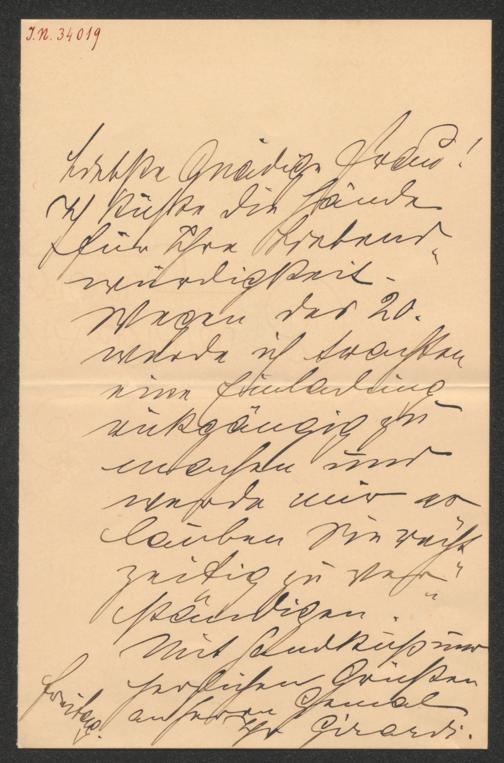 I.N. 34019
Liebste Gnädige Frau!
Ich küße die Hände
für Ihre Liebens
würdigkeit.
Wegen des 20.
werde ich trachten
eine Einladung
rükgängig zu
machen und
werde mir er
lauben Sie recht
zeitig zu ver
ständigen.
Mit Handkuß und
herzlichen Grüßen
an Herrn Gemal
Ihr Girardi.
Freitag.